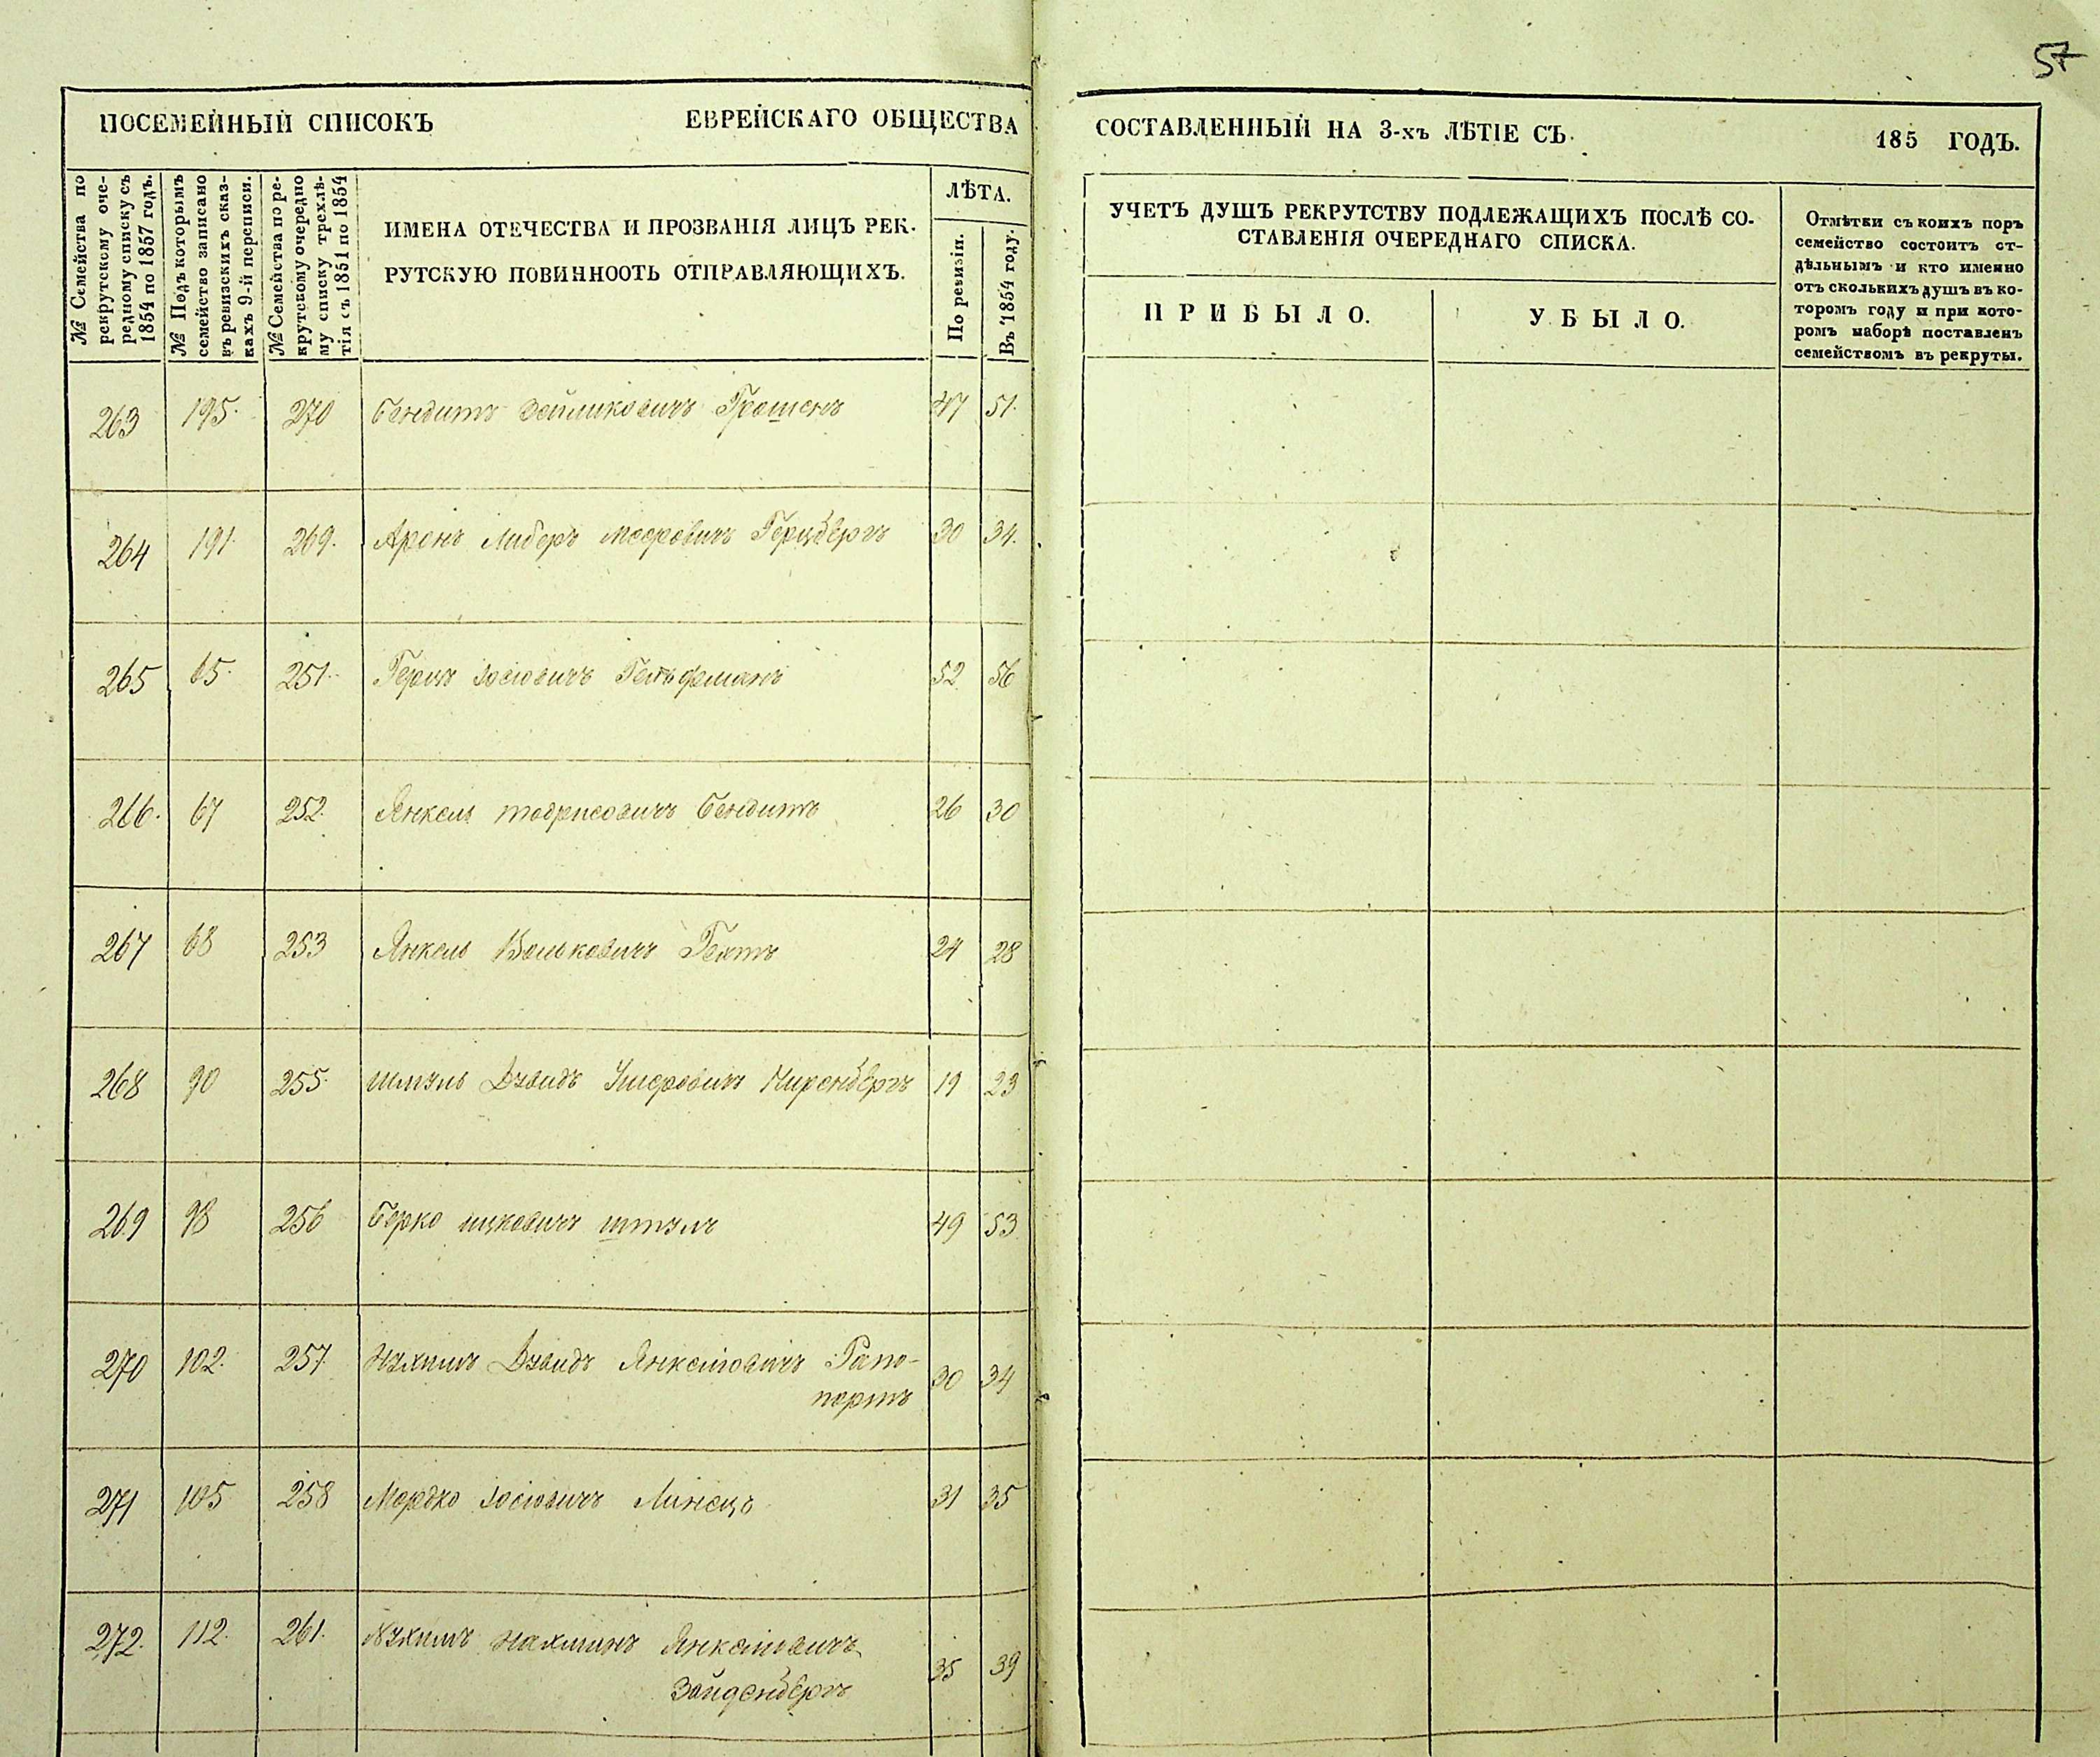 57
ПОСЕМЕЙНЫЙ СПИСОКЪ ЕВРЕЙСКАГО ОБЩЕСТВА СОСТАВЛЕННЫЙ НА 3-хъ ЛѢТІЕ СЪ 185 ГОДЪ.
№ Семейства по
рекрутскому оче-
редному списку съ
1854 по 1857 годъ.
№ Подъ которымъ
семейство записано
въ ревизскихъ сказ-
кахъ 9-й переписи.
№ Семейства по ре-
крутскому очередно
му списку трехлѣ-
тія съ 1851 по 1854
ИМЕНА ОТЕЧЕСТВА И ПРОЗВАНІЯ ЛИЦЪ РЕК-
РУТСКУЮ ПОВИННООТЬ ОТПРАВЛЯЮЩИХЪ.
ЛѢТА.
По ревизіи.
Въ 1854 году.
УЧЕТЪ ДУШЪ РЕКРУТСТВУ ПОДЛЕЖАЩИХЪ ПОСЛѢ СО-
СТАВЛЕНІЯ ОЧЕРЕДНАГО СПИСКА.
ПРИБЫЛО.
УБЫЛО.
Отмѣтки съ коихъ поръ
семейство состоитъ от-
дѣльнымъ и кто именно
отъ сколькихъ душъ въ ко-
торомъ году и при кото-
ромъ наборѣ поставленъ
семействомъ въ рекруты.
263 195. 270 Бендитъ Зейликовичъ 47 51.
264 191. 269. Аронъ Либеръ Мееровичъ Герцбергъ 30 34.
265 65. 251. Герцъ Іосіовичъ Гельфманъ 52 56
266. 67 252. Янкель Бендитъ 26 30
267 68 253 Янкель Вольковичъ 24 28
268 90 255. Шмуль Дувидъ Ушеровичъ Киренбергъ 19 23
269 98 256 Берко Ицковичъ Штулъ 49 53
270 102. 257. Нухимъ Дувидъ Янкеліовичъ Рапо-
портъ 30 34
271 105 258 Мордко Іосіовичъ Линецъ 31 35
272. 112. 261. Нухимъ Нахманъ Янкеліовичъ
Зайденбергъ 35 39